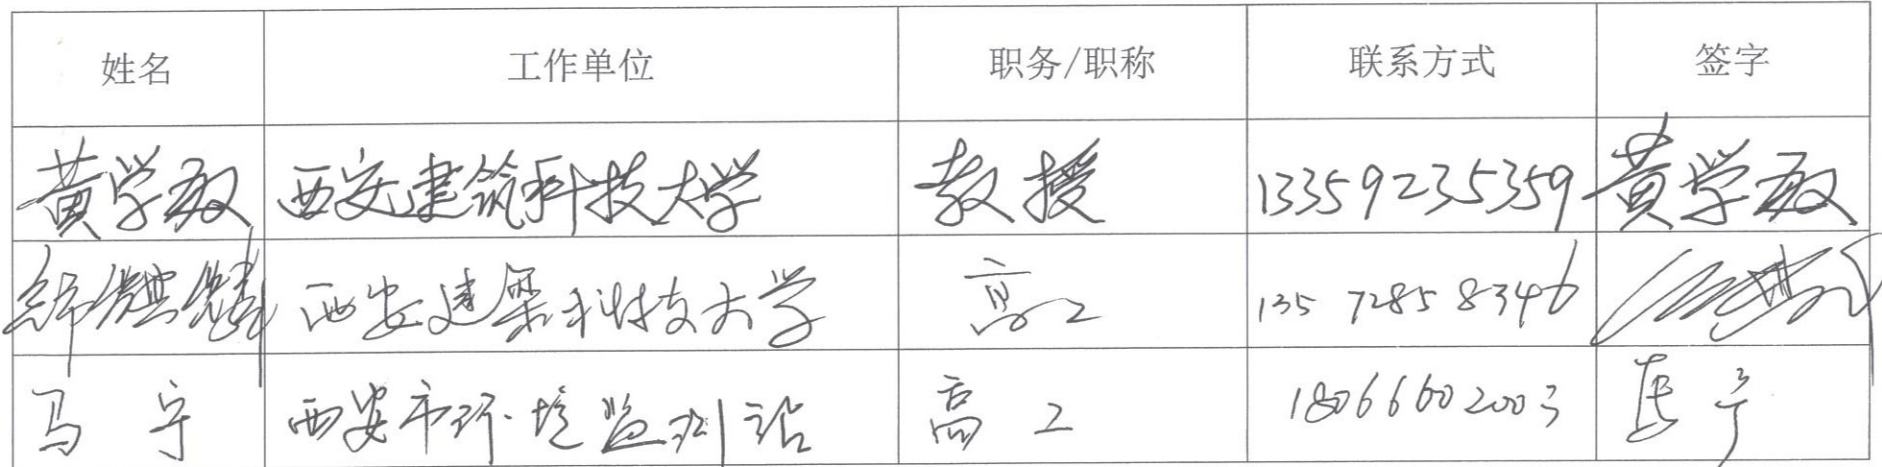 姓名 工作单位 职务/职称 联系方式 签字
黄学敏 西安建筑科技大学 教授 13359235359 黄学敏
西安建築科技大学 高工 135 7285 8346
马宁 西安市环境监测站 高工 18066602003 马宁